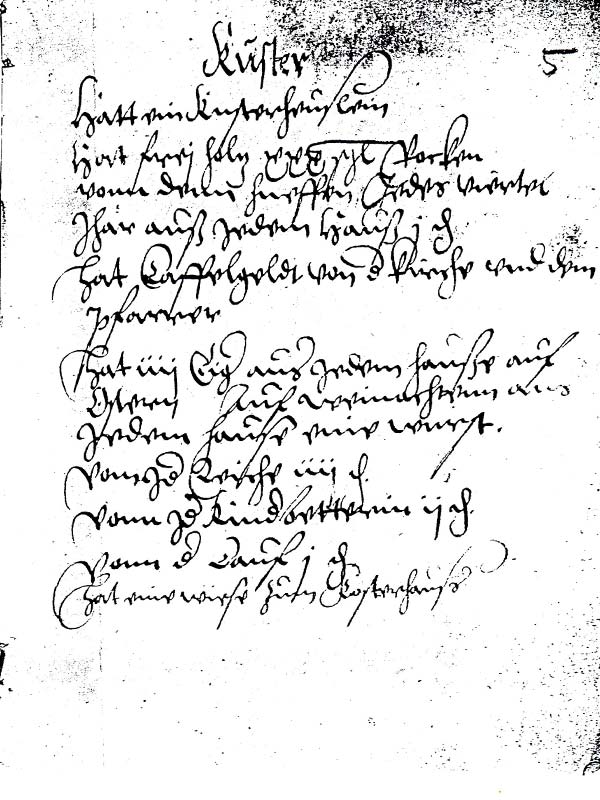 Küster
5
Hatt ein Küsterheuslein
Hat frei holtz xxx sgl Rocken
vonn denn hueffen Jedes viertel
Jhar auß Jedem Hauß j d
hat Taffelgeldt von d kirche vnd dem
pfarrer
Hat iiij Eig aus Jedem hauße auf
Ostern Auf weinachtenn aus
Jedem hause eine wurst.
Vonn Jd Leiche iiij d.
Vonn Jd Kindbetterin ij d.
Vonn d Tauf j d
Hat eine wiese zum Costerhauss